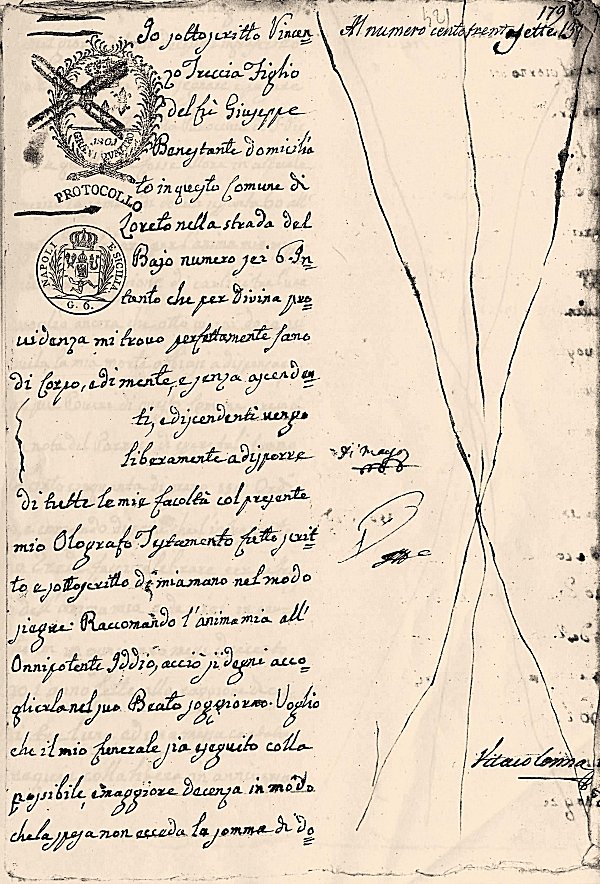 1798
Al numero cento trenta sette 137
Io sottoscritto Vincen=
zo Treccia Figlio
del fù Giuseppe
Benestante domicilia
to in questo Comune di
PROTOCOLLO
Loreto nella strada del
Bajo numero sei 6. In=
NAPOLI E SICILIA
G. 6.
tanto che per divina pro=
videnza mi trovo perfettamente sano
di Corpo, e di mente, e senza ascenden=
ti, e discendenti vengo
liberamente a disporre
di tutte le mie facoltà col presente
mio Olografo Testamento fatto scrit=
to e sottoscritto di mia mano nel modo
siegue: Raccomando l'anima mia all'
Onnipotente Iddio, acciò si degni acco=
glierla nel suo Beato soggiorno. Voglio
che il mio funerale sia eseguito colla
possibile, e maggiore decenza in modo
che la spesa non ecceda la somma di do=